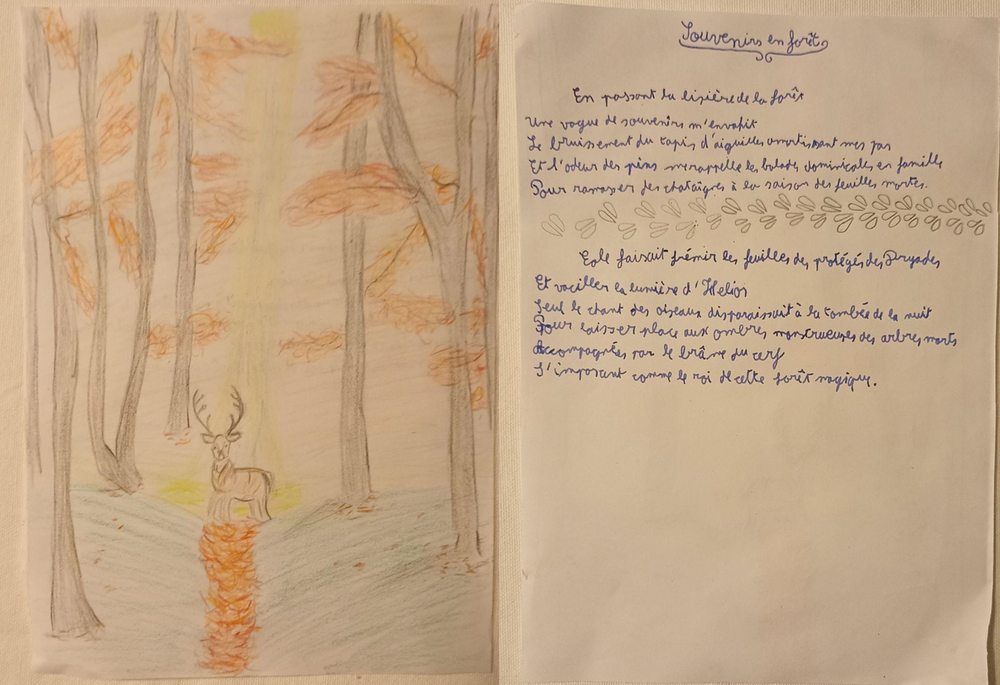 Souvenirs en forêt
En passant la lisière de la forêt
Une vague de souvenirs m'envahit
Le bruissement du tapis d'aiguilles amortissant mes pas
Et l'odeur des pins me rappelle les balades dominicales en famille
Pour ramasser des chataîgnes à la saison des feuilles mortes.
Eole faisait frémir les feuilles des protégés des Dryades
Et vaciller la lumière d'Helios
Seul le chant des oiseaux disparaissait à la tombée de la nuit
Pour laisser place aux ombres monstrueuses des arbres morts
Accompagnées par le brâme du cerf
S'imposant comme le roi de cette forêt magique.